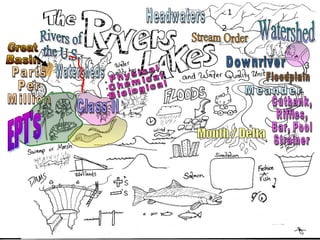 The
Rivers
Lakes
and Water Quality Unit
Headwaters
Stream Order
1
2
Watershed
Rivers of
the U.S.
Great
Basin
Parts
Per
Million
Watersheds
Water
Quality
Physical
Chemical
Biological
Downriver
Floodplain
Meander
Cutbank,
Riffles,
Bar, Pool
Strainer
Class II
FLOODS
EPT's
Mouth / Delta
Swamp or Marsh
Wetlands
DAMS
+'s
-'s
Salmon
Simulation
Fish